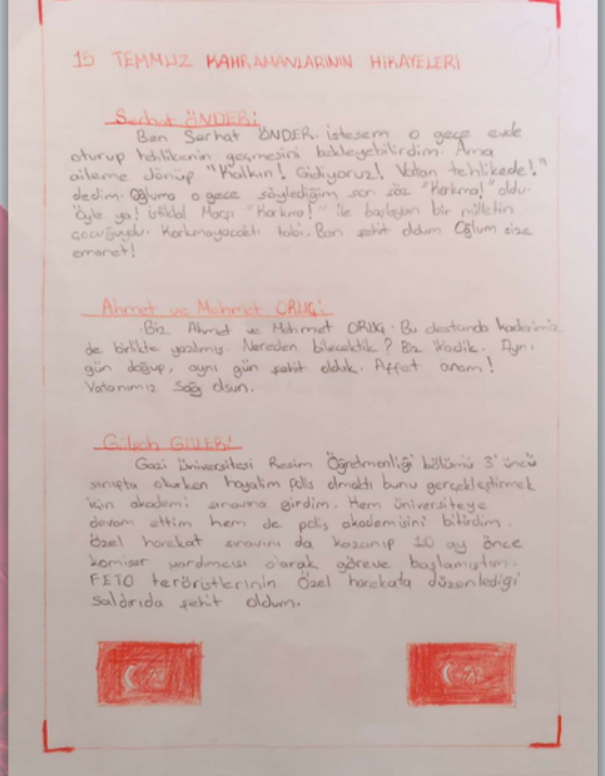 15 TEMMUZ KAHRAMANLARININ HİKAYELERİ
Serhat ÖNDER:
Ben Serhat ÖNDER. istesem o gece evde
oturup tehlikenin geçmesini bekleyebilirdim. Ama
aileme dönüp "Kalkın! Gidiyoruz! Vatan tehlikede!"
dedim. Oğluma o gece söylediğim son söz "Korkma!" oldu.
Öyle ya! istiklal Marşı "Korkma!" ile başlayan bir milletin
çocuğuydu. Korkmayacaktı tabi. Ben şehit oldum Oğlum size
emanet!
Ahmet ve Mehmet ORUÇ:
Biz Ahmet ve Mehmet ORUÇ. Bu destanda kaderimiz
de birlikte yazılmış. Nereden bilecektik? Biz ikizdik. Aynı
gün doğup, aynı gün şehit olduk. Affet anam!
Vatanımız Sağ olsun.
Gülşah GÜLER:
Gazi üniversitesi Resim Öğretmenliği bölümü 3'üncü
sınıfta okurken hayalim polis olmaktı bunu gerçekleştirmek
için akademi sınavına girdim. Hem üniversiteye
devam ettim hem de polis akademisini bitirdim.
Özel harekat sınavını da kazanıp 10 ay önce
komiser yardımcısı olarak göreve başlamıştım.
FETO teröristlerinin Özel harekata düzenlediği
saldırıda şehit oldum.